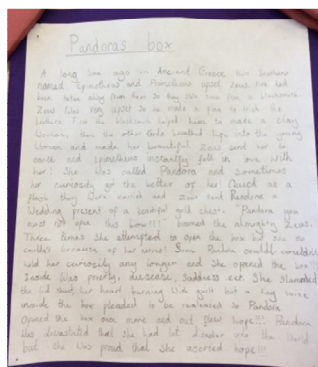 Pandoras box
A long time ago in Ancient Greece two brothers
named Epimetheus and Prometheus upset Zeus. Fire had
been taken away from them so they stole some from a blacksmith.
Zeus was very upset so he made a plan to trick the
brothers. First the blacksmith helped him to make a clay
woman, then the other Gods breathed life into the young
woman and made her beautiful. Zeus sent her to
earth and Epimetheus instantly fell in love with
her! She was called Pandora and sometimes
her curiosity got the better of her. Quick as a
flash they were married and Zeus sent Pandora a
wedding present of a beautiful gold chest. "Pandora you
must not open this box!!!" boomed the almighty Zeus.
Three times she attempted to open the box but she
couldn't because of her mind! Pandora couldn't
hold her curiosity any longer and she opened the box!!!
Inside was poverty, disease, saddness ect. She slammed
the lid shut, her heart burning with guilt but a tiny voice
inside the box pleaded to be realeased so Pandora
opened the box once more and out flew hope!!! Pandora
was devastated that she had let disaster into the world
but she was proud that she hope!!!